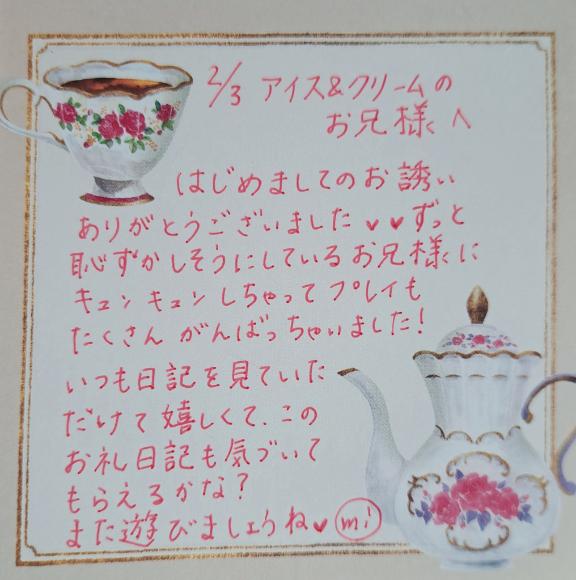 2/3 アイス&クリームの
お兄様へ
はじめましてのお誘い
ありがとうございました♥♥ずっと
恥ずかしそうにしているお兄様に
キュンキュンしちゃってプレイも
たくさんがんばっちゃいました!
いつも日記を見ていた
だけて嬉しくて、この
お礼日記も気づいて
もらえるかな?
また遊びましょうね♥ mi